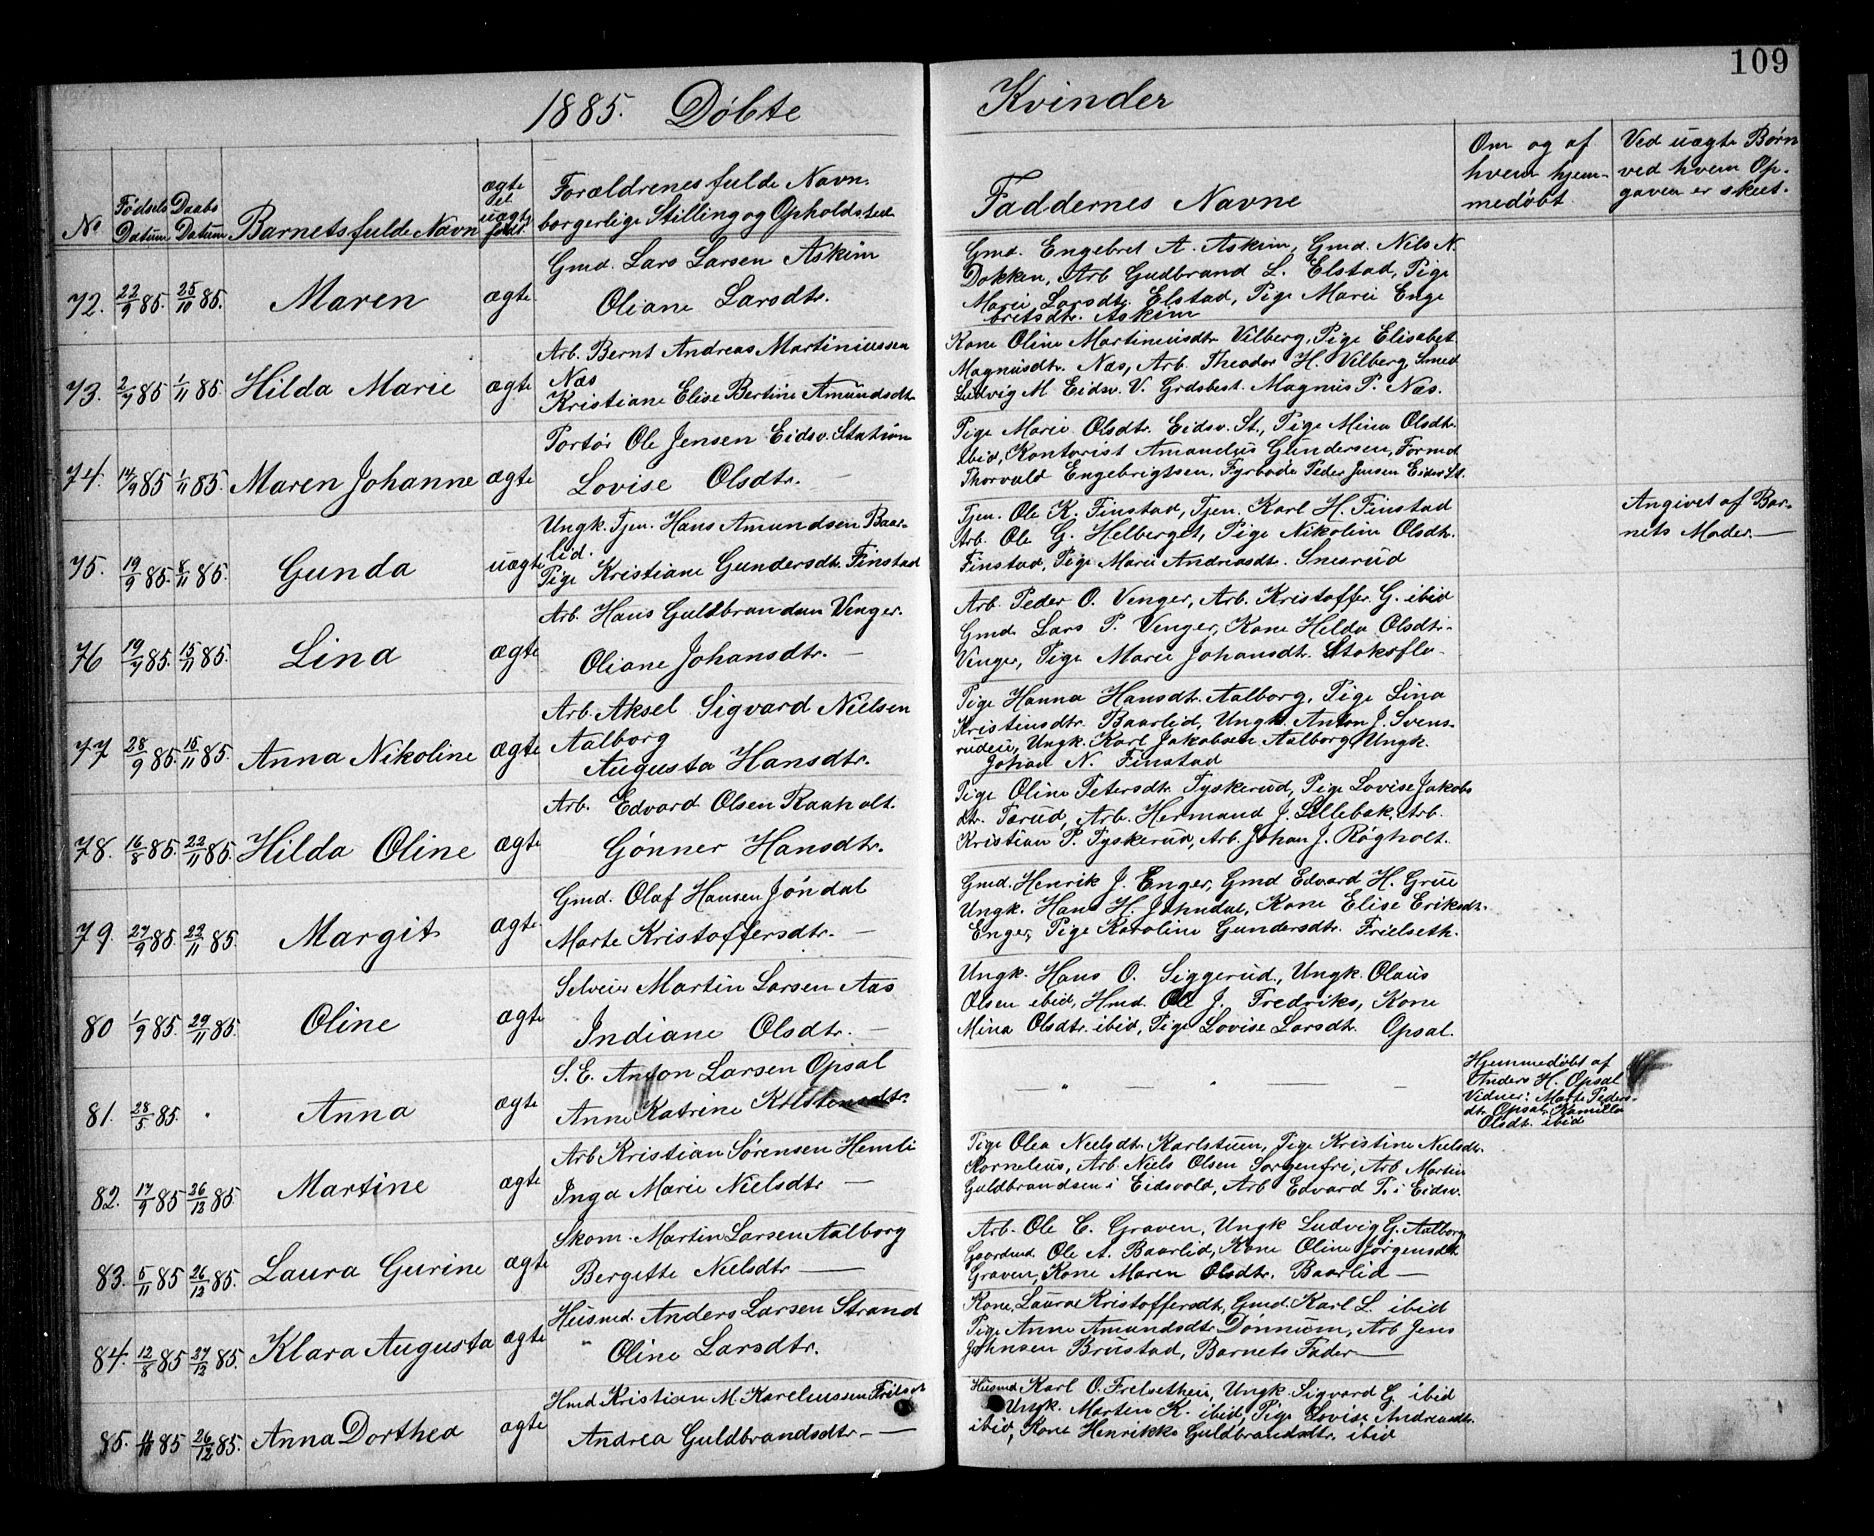 109
1885. Døbte
Kvinder
No
Fødsels Datum
Daabs Datum
Barnets fulde Navn
ægte el uægte født
Forældrenes fulde Navn.
borgerlige Stilling og Opholdsted
Faddernes Navne
Om og af
hvem hjem-
medøbt
Ved uægte Børn
ved hvem Op-
gaven er skeet.
72. 22/9 85. 25/10 85. Maren ægte
Gmd. Lars Larsen Askim
Oliane Larsdtr.
Gmd. Engebret A. Askim, Gmd. Nils N.
Dokken, Arb Gudbrand L. Elstad, Pige
Marie Larsdtr. Elstad, Pige Marie Enge
britsdtr. Askim
73. 2/9 85 1/11 85. Hilda Marie ægte
Arb. Bernt Andreas Martiniussen
Næs
Kristiane Elise Bertine Amundsdtr
Kone Oline Martiniusdtr Vilberg, Pige Elisabet
Magnusdtr. Næs, Arb. Theodor H. Vilberg, Smed
Ludvig M Eidsv. V. Grdsbest. Magnus P. Næs.
74. 14/9 85 1/11 85. Maren Johanne ægte
Portør Ole Jensen Eidsv. Station
Lovise Olsdtr. —
Pige Marie Olsdtr. Eidsv. St., Pige Mina Olsdtr.
ibid, Kontorist Amandus Gundersen, Formd
Thorvald Engebrigtsen, Fyrbøde Peder Jensen Eidsv. St.
75. 19/9 85. 8/11 85. Gunda uægte
Ungk. Tjen. Hans Amundsen Baar-
lid.
Pige Kristiane Gundersdtr Finstad
Tjen. Ole K. Finstad, Tjen. Karl H. Finstad
Arb. Ole G. Helberget, Pige Nikoline Olsdtr.
Finstad, Pige Marie Andreasdtr. Snesrud
Angivet af Bar-
nets Moder. —
76 19/9 85. 15/11 85. Lina ægte
Arb. Hans Guldbrandsen Venger.
Oliane Johansdtr. —
Arb. Peder O. Venger, Arb. Kristoffer G. ibid
Gmd. Lars P. Venger, Kone Hilda Olsdtr.
Venger, Pige Marie Johansdtr. Stoksflo-
77 28/9 85. 15/11 85. Anna Nikoline ægte
Arb. Aksel Sigvard Nielsen
Aalborg
Augusta Hansdtr.
Pige Hanna Hansdtr. Aalborg, Pige Lina
Kristinsdtr. Baarlid, Ungk. Anton J. Svens-
rudeie, Ungk. Karl Jakobsen Aalborg, Ungk.
Johan N. Finstad
78. 16/8 85. 22/11 85. Hilda Oline ægte
Arb. Edvard Olsen Raaholt.
Gønner Hansdtr.
Pige Oline Petersdtr Tyskerud, Pige Lovise Jakobs
dtr. Tærud, Arb. Hermand J. Lillebæk, Arb.
Kristian P. Tyskerud, Arb. Johan J. Røgholt.
79. 27/9 85. 22/11 85. Margit ægte
Gmd. Olaf Hansen Jøndal
Marte Kristoffersdtr. —
Gmd. Henrik J. Enger, Gmd Edvard H. Grue
Ungk. Hans H. Johndal, Kone Elise Eriksdtr.
Enger, Pige Karoline Gundersdtr. Frilseth.
80 1/9 85. 29/11 85. Oline ægte
Selveier Martin Larsen Aas
Indiane Olsdtr. —
Ungk. Hans O. Siggerud, Ungk. Olaus
Olsen ibid, Hmd. Ole J. Fredriks, Kone
Mina Olsdtr. ibid, Pige Lovise Larsdtr. Opsal.
81. 28/5 85. Anna ægte
S. E. Anton Larsen Opsal
Anne Katrine Kristensdtr.
— " — " — —
Hjemmedøbt af
Anders H. Opsal
Vidner: Marte Peders-
dtr. Opsal, Kamilla
Olsdtr. ibid
82. 17/9 85 26/12 85 Martine ægte
Arb Kristian Sørensen Hemli
Inga Marie Nielsdtr —
Pige Olea Nielsdtr. Karlstuen, Pige Kristine Nielsdtr.
Kornelius, Arb. Niels Olsen Sorgenfri, Arb Martin
Guldbrandsen i Eidsvold, Arb Edvard T. i Eidsv.
83. 5/11 85 26/12 85. Laura Gurine ægte
Skom. Martin Larsen Aalborg
Bergitte Nielsdtr —
Arb. Ole C. Graven, Ungk Ludvig G. Aalborg
Gaardmd. Ole A. Baarlid, Kone Oline Jørgensdtr
Graven, Kone Maren Olsdtr. Baarlid —
84. 12/8 85 27/12 85. Klara Augusta ægte
Husmd. Anders Larsen Strand
" Oline Larsdtr.
Kone Laura Kristoffersdtr, Gmd. Karl L. ibid
Pige Anne Amundsdtr Dønnum, Arb Jens
Johnsen Brustad, Barnets Fader —
85. 85 26/12 85. Anna Dorthea ægte
Hmd Kristian M. Kareliussen
Andrea Guldbrandsdtr. — —
Husmd Karl O. Frelsetheie, Ungk. Sigvard G. ibid
Ungk. Marten K. ibid, Pige Lovise Andreasdtr.
ibid, Kone Henrikke Guldbrandsdtr. ibid